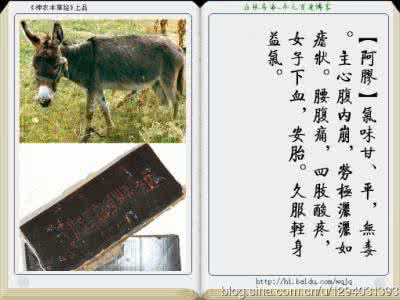 《神农本草经》上品
【阿膠】氣味甘、平，無毒
。主心腹內崩，勞極濃濃如
瘧狀。腰腹痛，四肢酸疼，
女子下血，安胎。久服輕身
益氣。
http://hi.baidu.com/wqjq
blog.sina.com.cn/u/1294031393